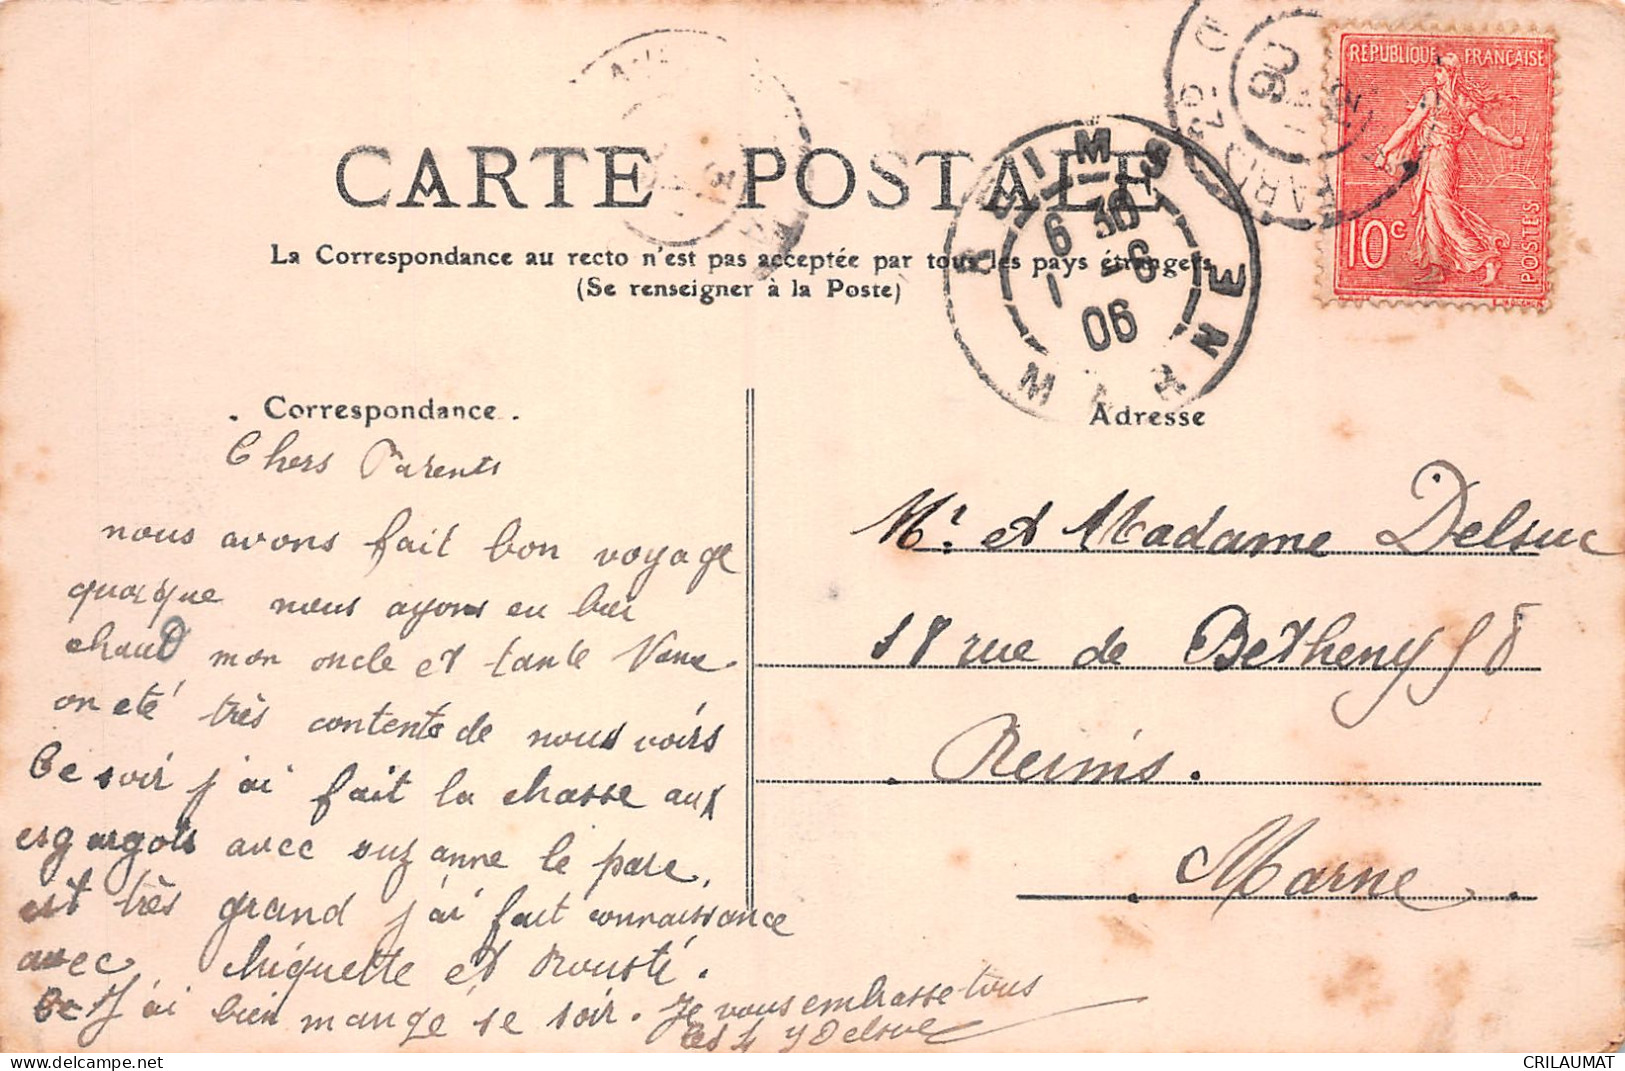 CARTE POSTALE
La Correspondance au recto n'est pas acceptée par tous les pays étrangers
(Se renseigner à la Poste)
REPUBLIQUE FRANÇAISE
10c
POSTES
REIMS
6 30
1 - 6
06
MARNE
PARIS
06
. Correspondance .
Chers Parents
nous avons fait bon voyage
quoique nous ayons eu bien
chaud mon oncle et tante
on été très contents de nous voirs
Ce soir j'ai fait la chasse aux
esgargots avec suzanne le parc
est très grand j'ai fait connaissance
avec chiquette et Rousti.
et J'ai bien mangé se soir. Je vous embrasse tous
les 4 y Delsuc
Adresse
Mr et Madame Delsuc
58 rue de Betheny 58
Reims.
Marne.
delcampe.net
CRILAUMAT